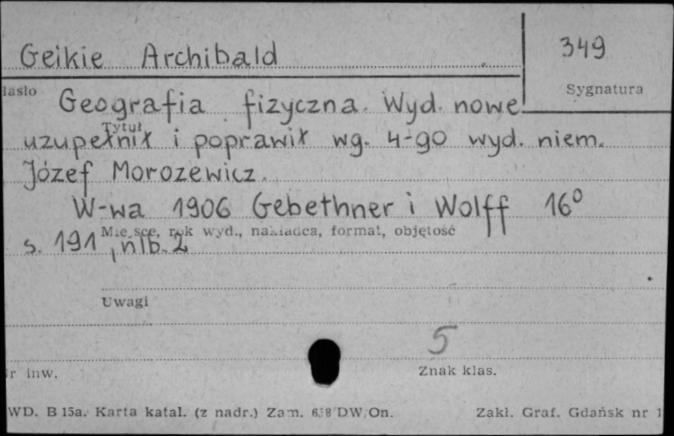 Geikie Archibald 349
Hasło Sygnatura
Geografia fizyczna. Wyd. nowe
Tytuł
uzupełnił i poprawił wg. 4-go wyd. niem.
Józef Morozewicz.
W-wa 1906 Gebethner i Wolff 16°
Miejsce, rok wyd., nakładca, format, objętość
s. 191, nlb. 2
Uwagi
5
Nr inw. Znak klas.
WD. B 15a. Karta katal. (z nadr.) Zam. DW/On. Zakł. Graf. Gdańsk nr 1